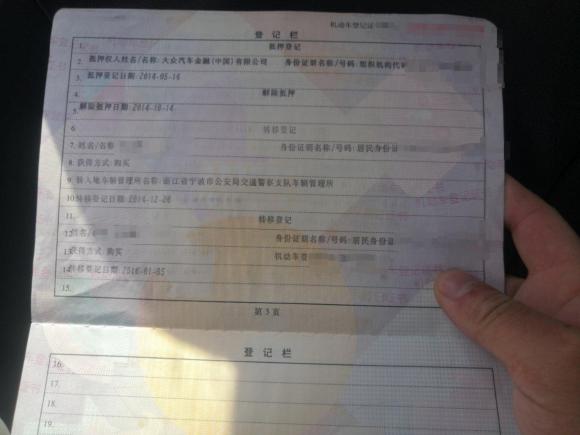 机动车登记证
登记栏
1. 抵押登记
2. 抵押权人姓名/名称:大众汽车金融(中国)有限公司 身份证明名称/号码:组织机构代
3. 抵押登记日期:2014-05-16
4. 解除抵押
5. 解除抵押日期:2014-10-14
6. 转移登记
7. 姓名/名称 身份证明名称/号码:居民身份证
8. 获得方式:购买
9. 转入地车辆管理所名称:浙江省宁波市公安局交通警察支队车辆管理所
10. 转移登记日期:2014-12-26
11. 转移登记
12. 姓名/ 身份证明名称/号码:居民身份证
13. 获得方式:购买 机动车登
14. 转移登记日期:2016-01-05
15.
第3页
登记栏
16.
17.
18.
19.